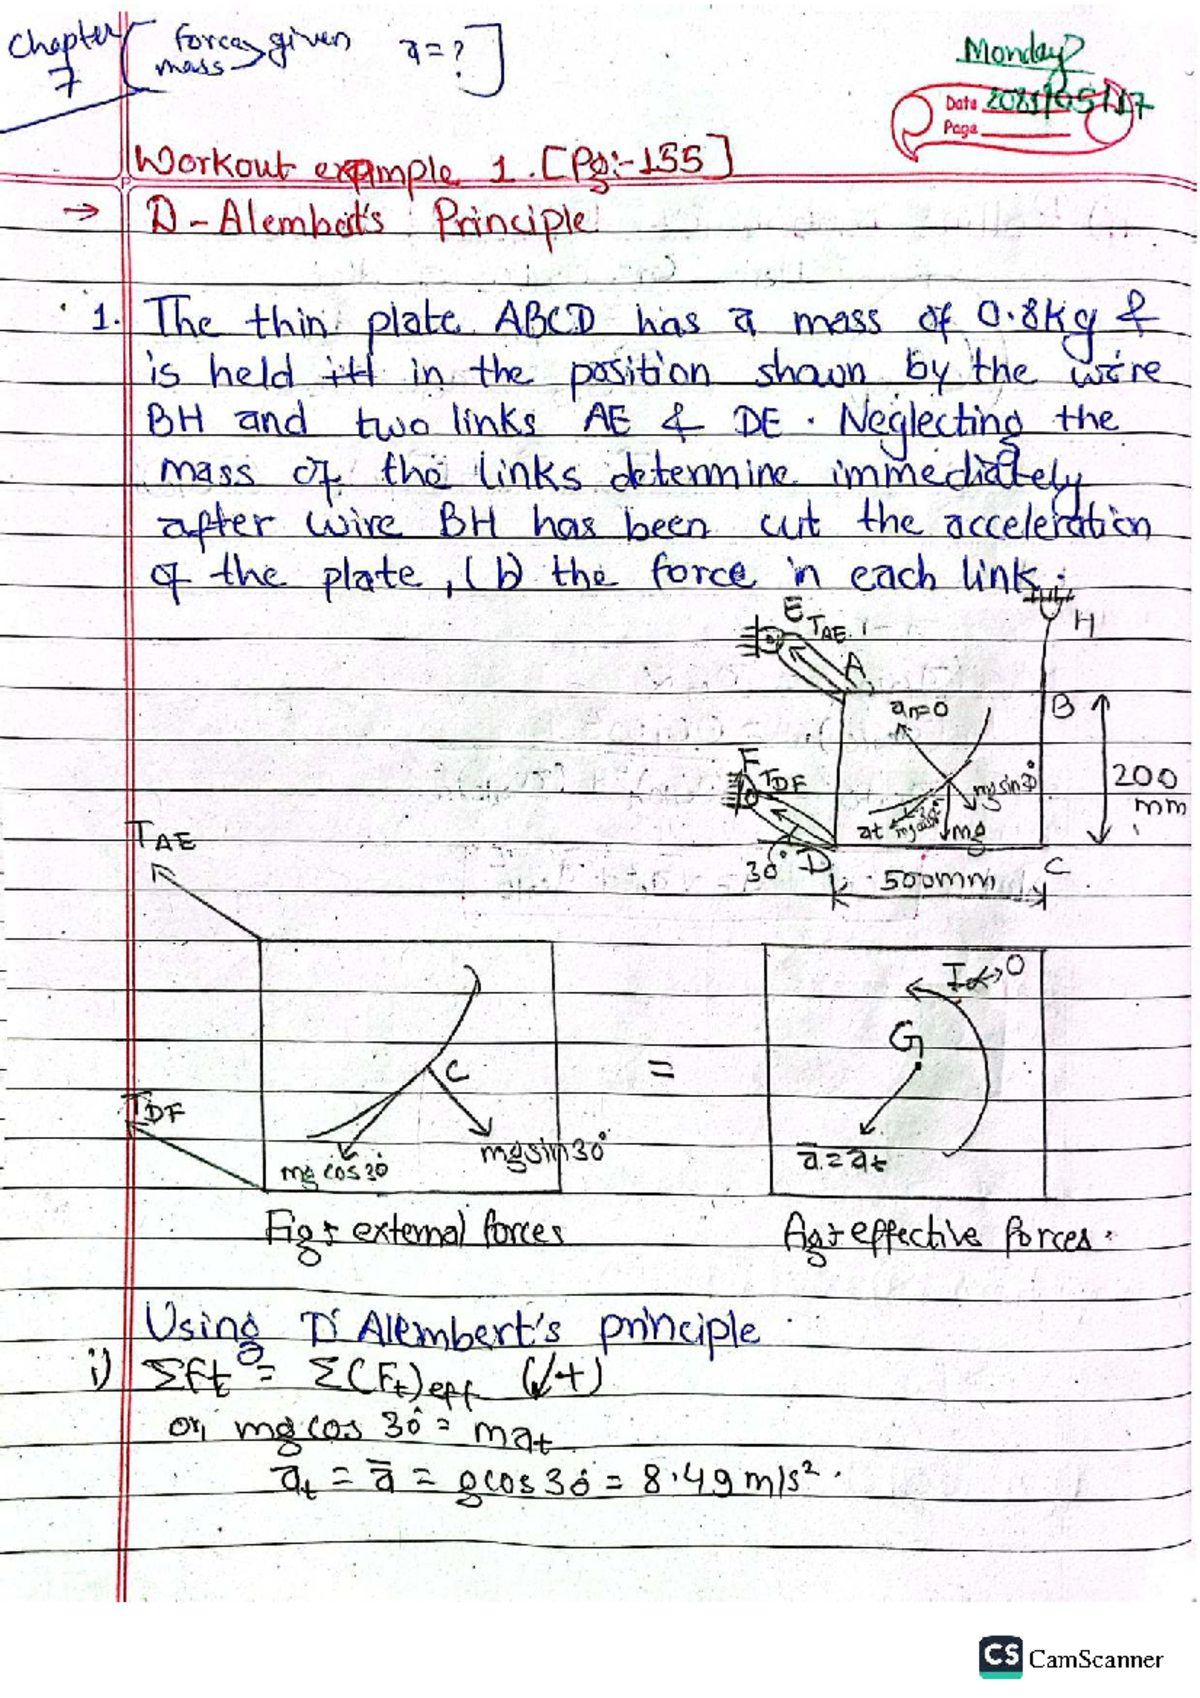 Chapter 7 [ forces given mass a = ? ]
Monday
Date 2021/05/17
Page
Workout example 1. [Pg:-155]
→ D-Alembert's Principle
1. The thin plate ABCD has a mass of 0.8kg &
is held in the position shown by the wire
BH and two links AE & DE. Neglecting the
mass of the links determine immediately
after wire BH has been cut the acceleration
of the plate, (b) the force in each link.
E TAE H
A
an=0 B
F TDF mgsin30° 200 mm
at mgcos30° mg
30° D 500mm C
TAE
Iα→0
G
C
=
TDF
mg cos30° mgsin30° ā=at
Fig: external forces
Fig: effective forces.
Using D'Alembert's principle
i) ΣFt = Σ(Ft)eff (↙+)
or, mg cos 30° = mat
āt = ā = gcos30° = 8.49 m/s².
CS CamScanner